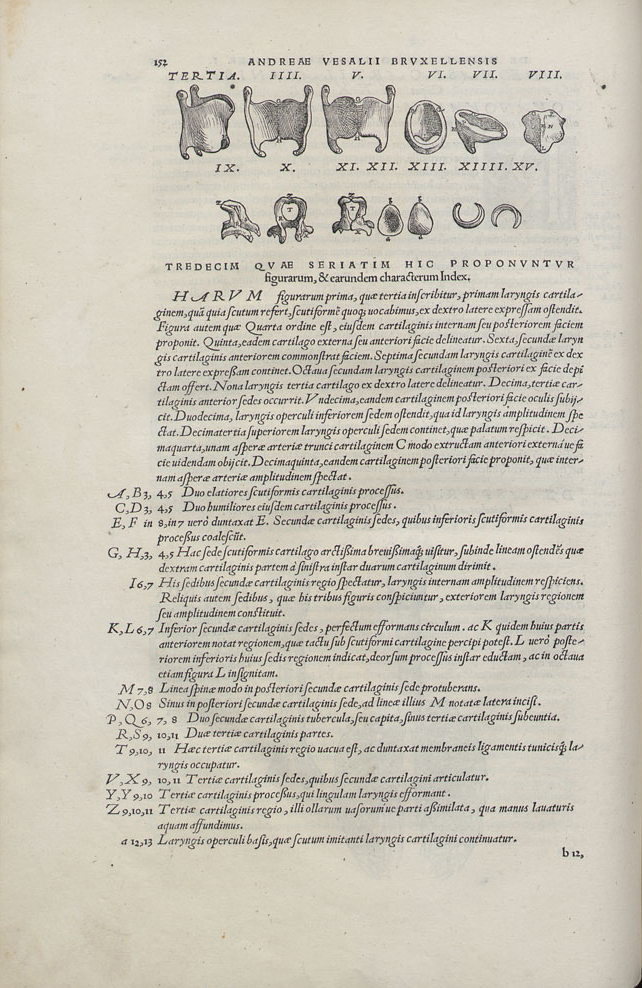 152 ANDREAE VESALII BRVXELLENSIS
TERTIA. IIII. V. VI. VII. VIII.
IX. X. XI. XII. XIII. XIIII. XV.
TREDECIM QVAE SERIATIM HIC PROPONVNTVR
figurarum, & earundem characterum Index.
HARVM figurarum prima, quæ tertia inscribitur, primam laryngis cartila-
ginem, quā quia scutum refert, scutiformē quoq; uocabimus, ex dextro latere expressam ostendit.
Figura autem quæ Quarta ordine est, eiusdem cartilaginis internam seu posteriorem faciem
proponit. Quinta, eadem cartilago externa seu anteriori facie delineatur. Sexta, secundæ laryn
gis cartilaginis anteriorem commonstrat faciem. Septima secundam laryngis cartilaginē ex dex
tro latere expreßam continet. Octaua secundam laryngis cartilaginem posteriori ex facie depi
ctam offert. Nona laryngis tertia cartilago ex dextro latere delineatur. Decima, tertiæ car-
tilaginis anterior sedes occurrit. Vndecima, eandem cartilaginem posteriori facie oculis subij-
cit. Duodecima, laryngis operculi inferiorem sedem ostendit, qua id laryngis amplitudinem spe
ctat. Decimatertia superiorem laryngis operculi sedem continet, quæ palatum respicit. Deci-
maquarta, unam asperæ arteriæ trunci cartilaginem C modo extructam anteriori externáue fa
cie uidendam obijcit. Decimaquinta, eandem cartilaginem posteriori facie proponit, quæ inter-
nam asperæ arteriæ amplitudinem spectat.
A, B 3, 4, 5 Duo elatiores scutiformis cartilaginis processus.
C, D 3, 4, 5 Duo humiliores eiusdem cartilaginis processus.
E, F in 8, in 7 uerò duntaxat E. Secundæ cartilaginis sedes, quibus inferioris scutiformis cartilaginis
proceßus coalescūt.
G, H, 3, 4, 5 Hac sede scutiformis cartilago arctißima breuißimaq; uisitur, subinde lineam ostendēs quæ
dextram cartilaginis partem à sinistra instar duarum cartilaginum dirimit.
I 6, 7 His sedibus secundæ cartilaginis regio spectatur, laryngis internam amplitudinem respiciens.
Reliquis autem sedibus, quæ his tribus figuris conspiciuntur, exteriorem laryngis regionem
seu amplitudinem constituit.
K, L 6, 7 Inferior secundæ cartilaginis sedes, perfectum efformans circulum. ac K quidem huius partis
anteriorem notat regionem, quæ tactu sub scutiformi cartilagine percipi potest. L uerò poste-
riorem inferioris huius sedis regionem indicat, deorsum processus instar eductam, ac in octaua
etiam figura L insignitam.
M 7, 8 Linea spinæ modo in posteriori secundæ cartilaginis sede protuberans.
N, O 8 Sinus in posteriori secundæ cartilaginis sede, ad lineæ illius M notatæ latera incisi.
P, Q 6, 7, 8 Duo secundæ cartilaginis tubercula, seu capita, sinus tertiæ cartilaginis subeuntia.
R, S 9, 10, 11 Duæ tertiæ cartilaginis partes.
T 9, 10, 11 Hæc tertiæ cartilaginis regio uacua est, ac duntaxat membraneis ligamentis tunicisq; la-
ryngis occupatur.
V, X 9, 10, 11 Tertiæ cartilaginis sedes, quibus secundæ cartilagini articulatur.
Y, Y 9, 10 Tertiæ cartilaginis proceßus, qui lingulam laryngis efformant.
Z 9, 10, 11 Tertiæ cartilaginis regio, illi ollarum uasorum'ue parti aßimilata, qua manus lauaturis
aquam affundimus.
a 12, 13 Laryngis operculi basis, quæ scutum imitanti laryngis cartilagini continuatur.
b 12,